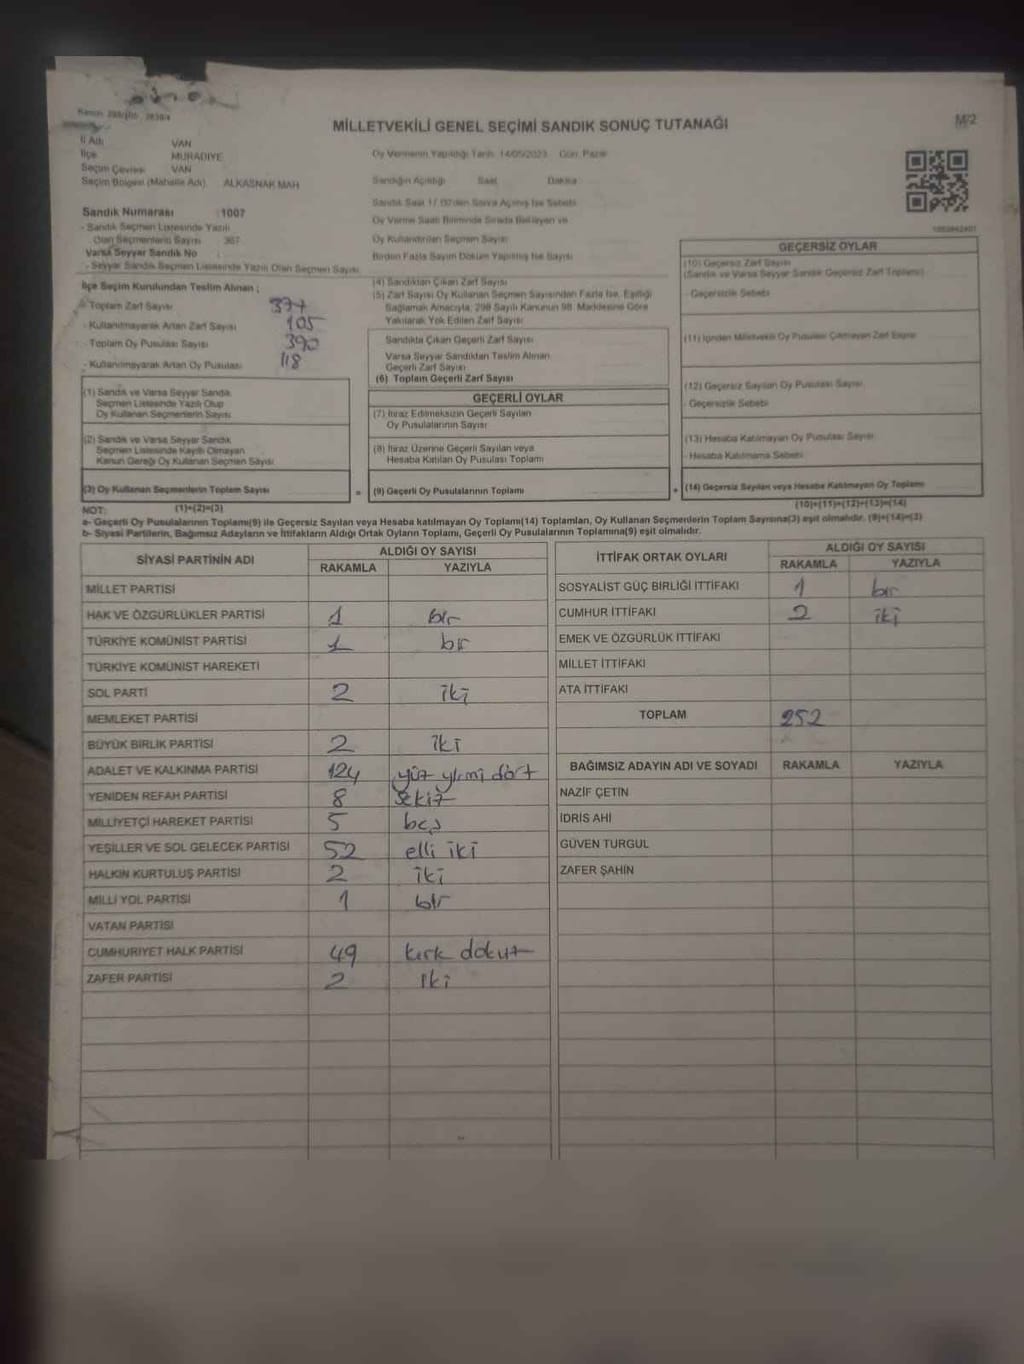 MİLLETVEKİLİ GENEL SEÇİMİ SANDIK SONUÇ TUTANAĞI
M/2
İl Adı VAN
İlçe MURADİYE
Seçim Çevresi VAN
Seçim Bölgesi (Mahalle Adı) ALKASNAK MAH
Sandık Numarası : 1007
- Sandık Seçmen Listesinde Yazılı
Olan Seçmenlerin Sayısı 367
Varsa Seyyar Sandık No
- Seyyar Sandık Seçmen Listesinde Yazılı Olan Seçmen Sayısı
İlçe Seçim Kurulundan Teslim Alınan ;
- Toplam Zarf Sayısı 377
- Kullanılmayarak Artan Zarf Sayısı 105
- Toplam Oy Pusulası Sayısı 390
- Kullanılmayarak Artan Oy Pusulası 118
(1) Sandık ve Varsa Seyyar Sandık
Seçmen Listesinde Yazılı Olup
Oy Kullanan Seçmenlerin Sayısı
(2) Sandık ve Varsa Seyyar Sandık
Seçmen Listesinde Kayıtlı Olmayan
Kanun Gereği Oy Kullanan Seçmen Sayısı
(3) Oy Kullanan Seçmenlerin Toplam Sayısı
(1)+(2)=(3)
Oy Vermenin Yapıldığı Tarih: 14/05/2023 Gün: Pazar
Sandığın Açıldığı Saat Dakika
Sandık Saat 17.00'den Sonra Açılmış İse Sebebi
Oy Verme Saati Bitiminde Sırada Bekleyen ve
Oy Kullandırılan Seçmen Sayısı
Birden Fazla Sayım Döküm Yapılmış İse Sayısı
(4) Sandıktan Çıkan Zarf Sayısı
(5) Zarf Sayısı Oy Kullanan Seçmen Sayısından Fazla İse, Eşitliği
Sağlamak Amacıyla, 298 Sayılı Kanunun 98. Maddesine Göre
Yakılarak Yok Edilen Zarf Sayısı
Sandıkta Çıkan Geçerli Zarf Sayısı
Varsa Seyyar Sandıktan Teslim Alınan
Geçerli Zarf Sayısı
(6) Toplam Geçerli Zarf Sayısı
GEÇERLİ OYLAR
(7) İtiraz Edilmeksizin Geçerli Sayılan
Oy Pusulalarının Sayısı
(8) İtiraz Üzerine Geçerli Sayılan veya
Hesaba Katılan Oy Pusulası Toplamı
= (9) Geçerli Oy Pusulalarının Toplamı
GEÇERSİZ OYLAR
(10) Geçersiz Zarf Sayısı
(Sandık ve Varsa Seyyar Sandık Geçersiz Zarf Toplamı)
- Geçersizlik Sebebi
(11) İçinden Milletvekili Oy Pusulası Çıkmayan Zarf Sayısı
(12) Geçersiz Sayılan Oy Pusulası Sayısı
- Geçersizlik Sebebi
(13) Hesaba Katılmayan Oy Pusulası Sayısı
- Hesaba Katılmama Sebebi
+ (14) Geçersiz Sayılan veya Hesaba Katılmayan Oy Toplamı
(10)+(11)+(12)+(13)=(14)
NOT:
a- Geçerli Oy Pusulalarının Toplamı(9) ile Geçersiz Sayılan veya Hesaba katılmayan Oy Toplamı(14) Toplamları, Oy Kullanan Seçmenlerin Toplam Sayısına(3) eşit olmalıdır. (9)+(14)=(3)
b- Siyasi Partilerin, Bağımsız Adayların ve İttifakların Aldığı Ortak Oyların Toplamı, Geçerli Oy Pusulalarının Toplamına(9) eşit olmalıdır.
SİYASİ PARTİNİN ADI ALDIĞI OY SAYISI
RAKAMLA YAZIYLA
MİLLET PARTİSİ
HAK VE ÖZGÜRLÜKLER PARTİSİ 1 bir
TÜRKİYE KOMÜNİST PARTİSİ 1 bir
TÜRKİYE KOMÜNİST HAREKETİ
SOL PARTİ 2 iki
MEMLEKET PARTİSİ
BÜYÜK BİRLİK PARTİSİ 2 iki
ADALET VE KALKINMA PARTİSİ 124 yüz yirmi dört
YENİDEN REFAH PARTİSİ 8 sekiz
MİLLİYETÇİ HAREKET PARTİSİ 5 beş
YEŞİLLER VE SOL GELECEK PARTİSİ 52 elli iki
HALKIN KURTULUŞ PARTİSİ 2 iki
MİLLİ YOL PARTİSİ 1 bir
VATAN PARTİSİ
CUMHURİYET HALK PARTİSİ 49 kırk dokuz
ZAFER PARTİSİ 2 iki
İTTİFAK ORTAK OYLARI ALDIĞI OY SAYISI
RAKAMLA YAZIYLA
SOSYALİST GÜÇ BİRLİĞİ İTTİFAKI 1 bir
CUMHUR İTTİFAKI 2 iki
EMEK VE ÖZGÜRLÜK İTTİFAKI
MİLLET İTTİFAKI
ATA İTTİFAKI
TOPLAM 252
BAĞIMSIZ ADAYIN ADI VE SOYADI RAKAMLA YAZIYLA
NAZİF ÇETİN
İDRİS AHİ
GÜVEN TURGUL
ZAFER ŞAHİN